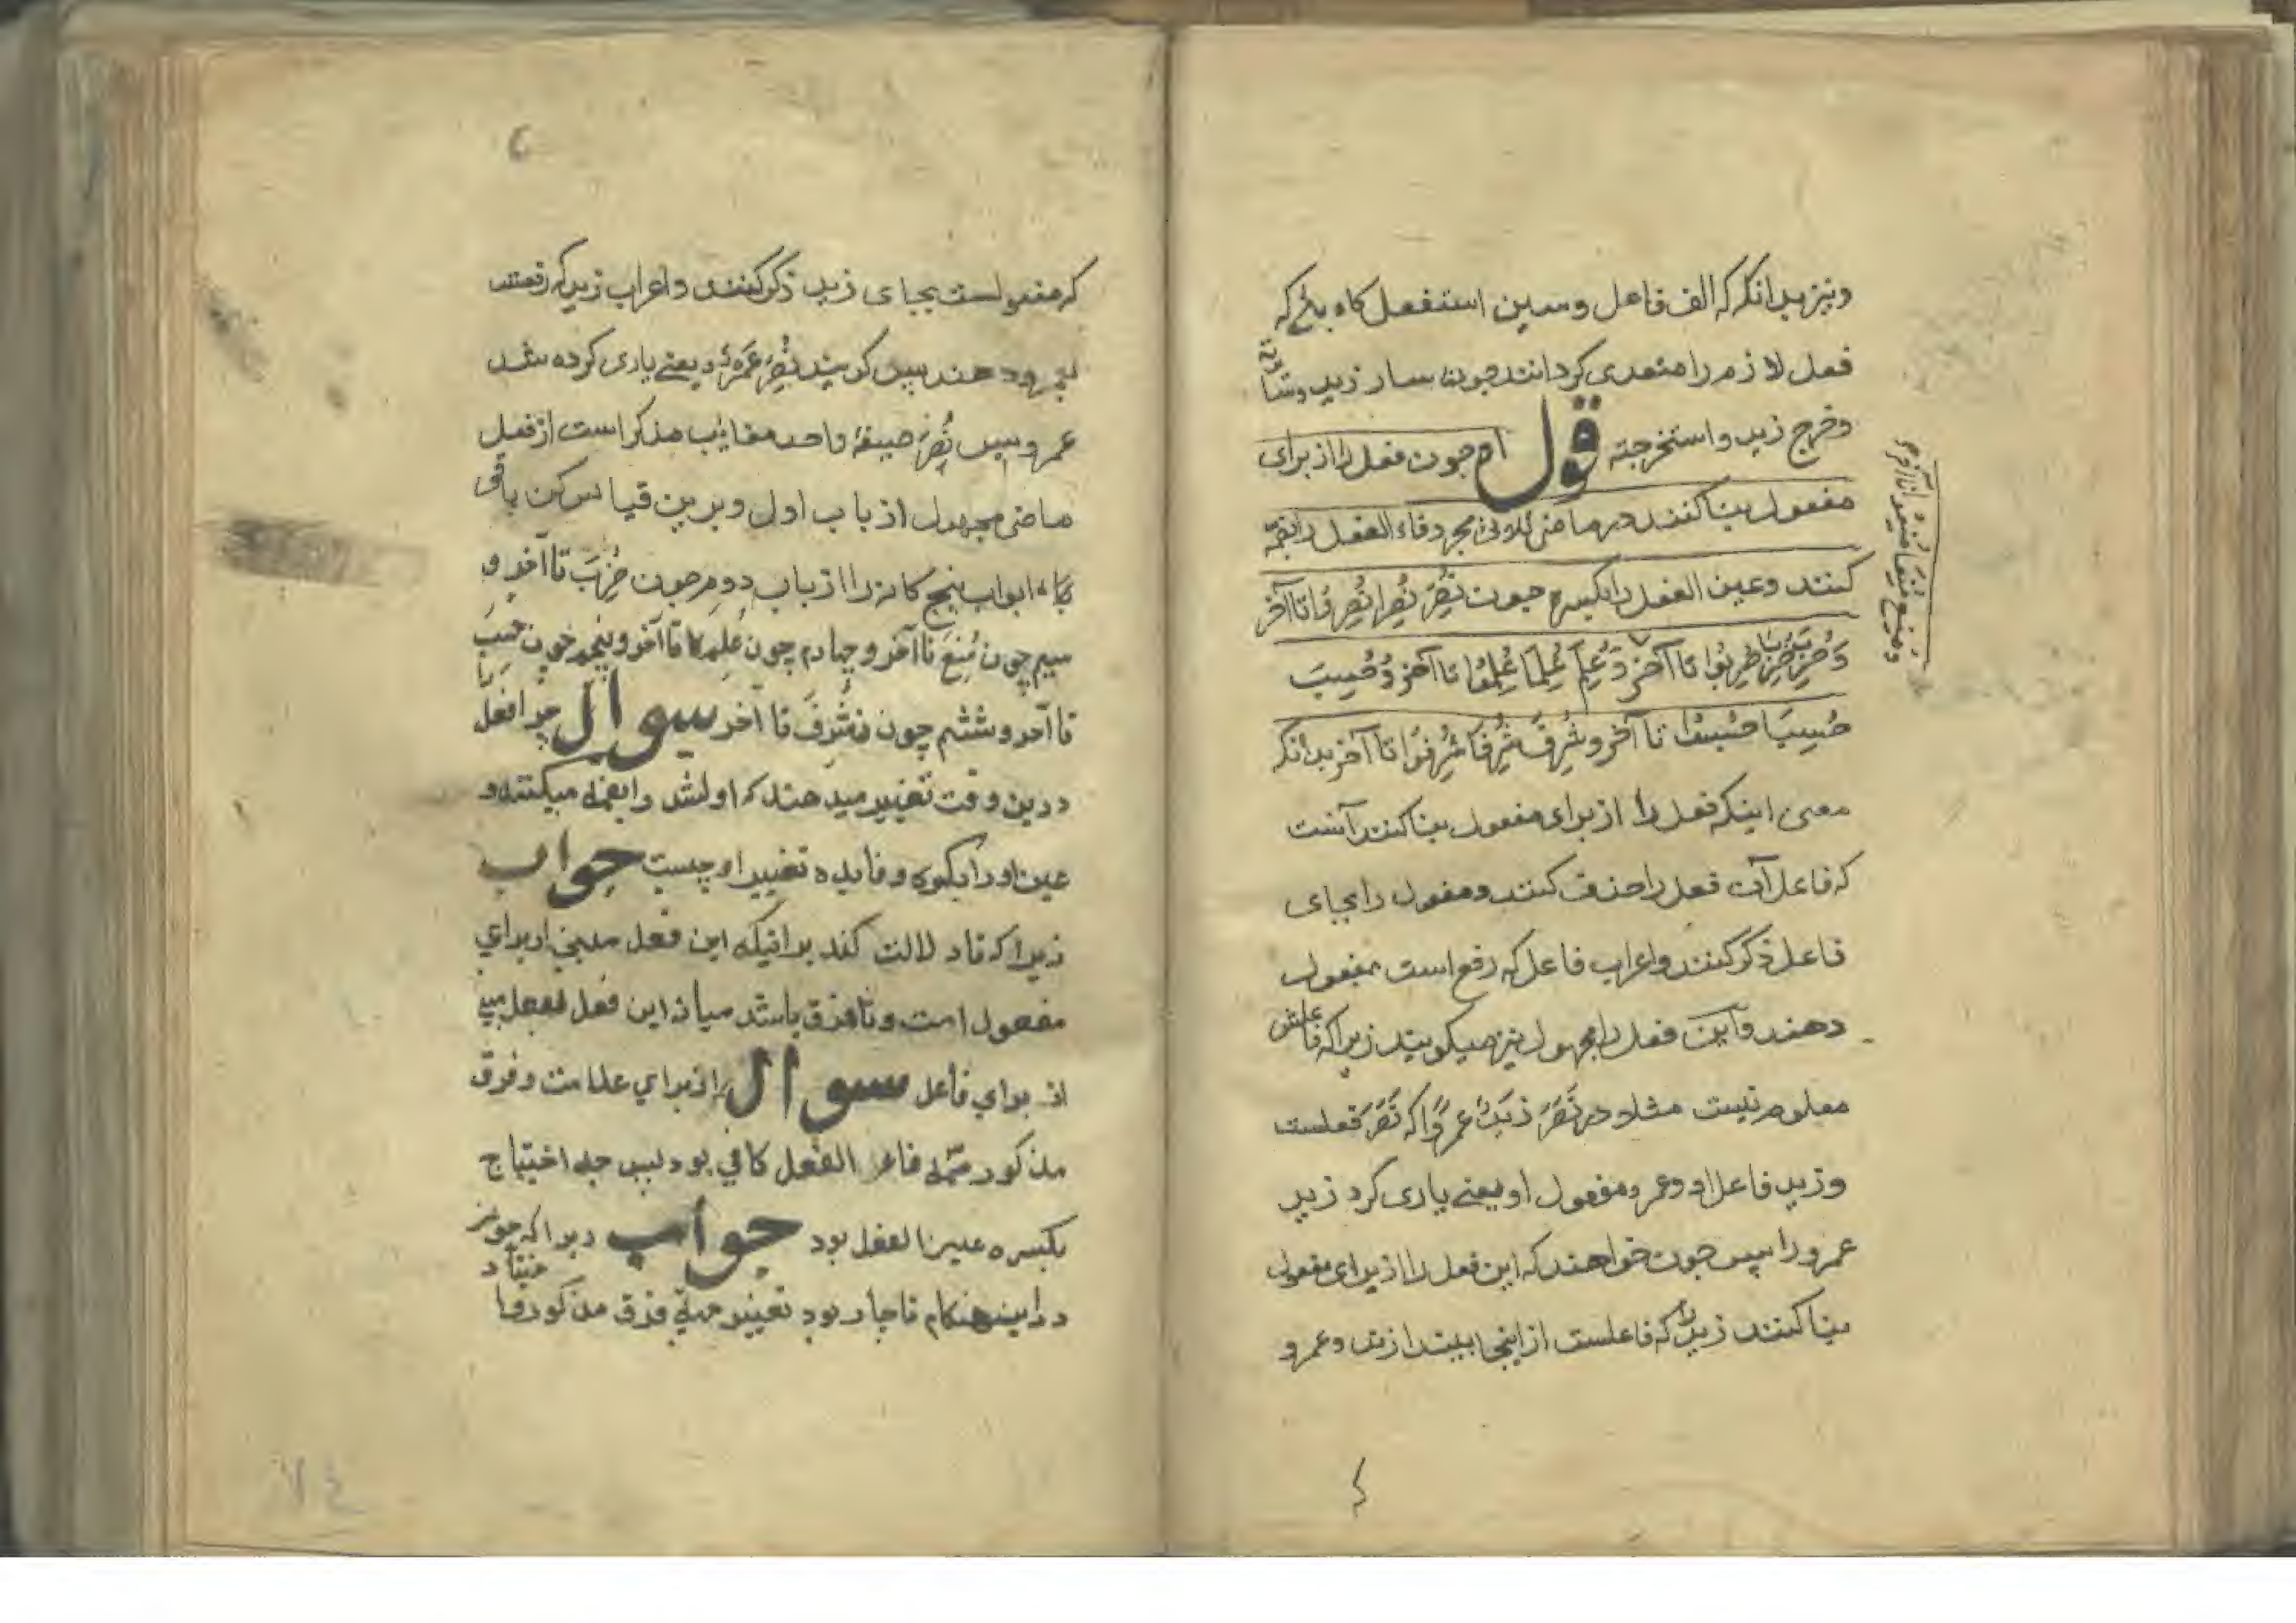 ونیز بدانکه که الف فاعل وسین استفعل کاه باشد که
فعل لازم را متعدی کردانند چون سار زید و
وخرج زید واستخرجته قوله چون فعل را از برای
مفعول بنا کنند در ماضی ثلاثی مجرد فاء الفعل را بضمّه
کنند وعین الفعل را بکسره چون نُصِرَ نُصِرا نُصِرُوا تا آخر
وَضُرِبَ ضُرِبَا ضُرِبُوا تا آخر وَعُلِمَ عُلِمَا عُلِمُوا تا آخر وَحُسِبَ
حُسِبَا حُسِبُوا تا آخر وشُرِفَ شُرِفَا شُرِفُوا تا آخر بدانکه
معنی اینکه فعل را از برای مفعول بنا کنند آنست
که فاعل آن فعل را حذف کنند ومفعول را بجای
فاعل ذکر کنند واعراب فاعل که رفع است بمفعول
دهند واین فعل را مجهول نیز میکویند زیرا که فاعلش
معلوم نیست مثلا در نَصَرَ زَیدٌ عمرًوا که نَصَرَ فعلست
وزید فاعل او وعمرو مفعول او یعنی یاری کرد زید
عمرو را پس چون خواهند که این فعل را از برای مفعول
بنا کنند زید را که فاعلست از اینجا بیندازند وعمرو
که مفعولست بجای زید ذکر کنند واعراب زید که رفعست
بعمرو دهند پس کویند نُصِرَ عَمروٌ یعنی یاری کرده شد
عمرو پس نُصِرَ صیغهٔ واحد مغایب مذکر است از فعل
ماضی مجهول از باب اول وبرین قیاس کن باقی
ابواب پنج کانه را از باب دوم چون ضُرِبَ تا آخر و
سیم چون مُنِعَ تا آخر و چهارم چون عُلِمَ تا آخر وپنجم چون حُسِبَ
تا آخر وششم چون شُرِفَ تا آخر سوال چرا فعل
درین وقت تغییر میدهند که اولش را بضمه میکنند و
عین او را بکسره وفایده تغییر او چیست جواب
زیرا که تا دلالت کند برانیکه این فعل مبنی از برای
مفعول است وتا فرق باشد میان این فعل وفعل مبنی
از برای فاعل سوال از برای علامت وفرق
مذکور ضمهٔ فاء الفعل کافی بود پس چه احتیاج
بکسره عین الفعل بود جواب زیرا که چون
دراینهنکام ناچار بود تغییر جهة فرق مذکور